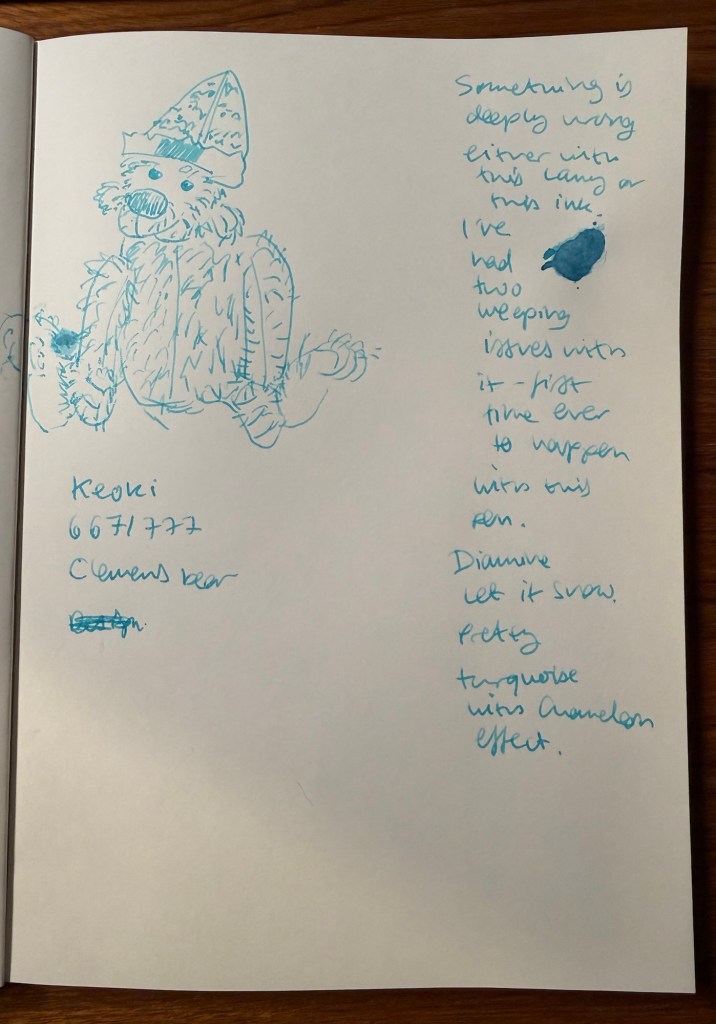 Keoki
667/777
Clemens bear
Something is
deeply wrong
either with
this Lamy or
this ink.
I've
had
two
weeping
issues with
it - first
time ever
to happen
with this
pen.
Diamine
Let it Snow.
Pretty
turquoise
with Chameleon
effect.